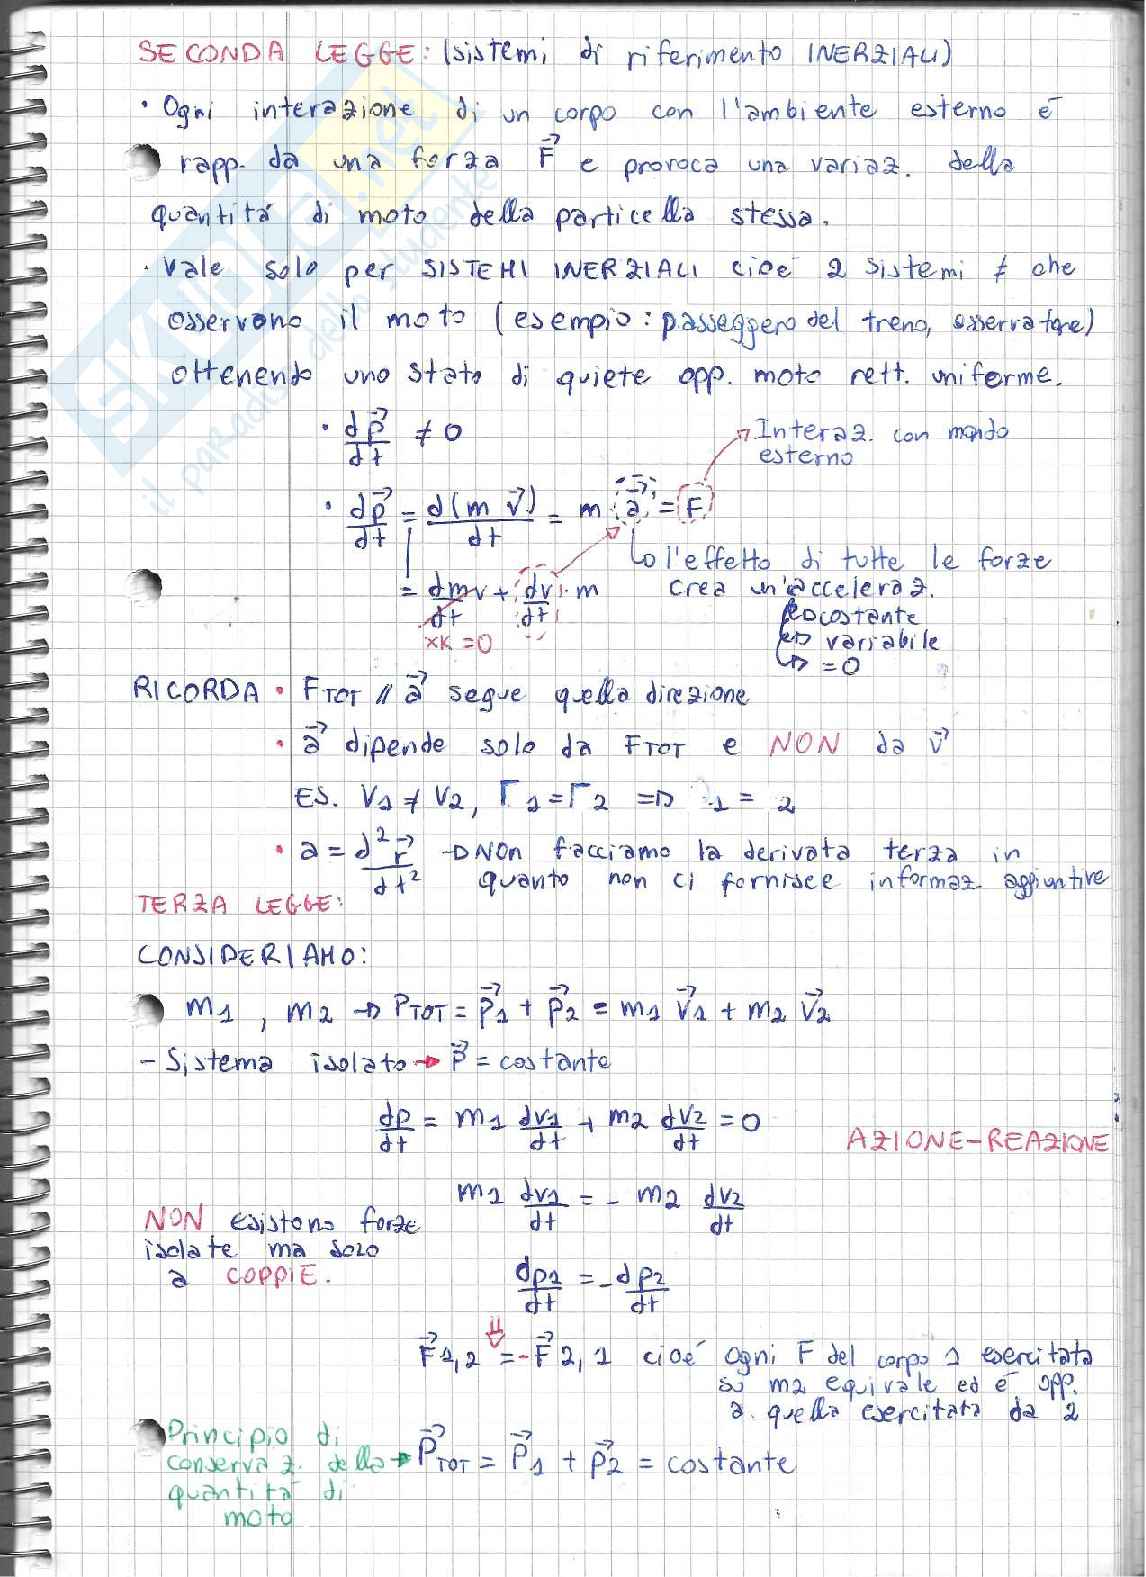 SECONDA LEGGE: (sistemi di riferimento INERZIALI)
• Ogni interazione di un corpo con l'ambiente esterno è
rapp. da una forza F⃗ e provoca una variaz. della
quantità di moto della particella stessa.
• Vale solo per SISTEMI INERZIALI cioè 2 sistemi ≠ che
osservano il moto (esempio: passeggero del treno, osservatore)
ottenendo uno stato di quiete opp. moto rett. uniforme.
• dp⃗/dt ≠ 0
Interaz. con mondo
esterno
• dp⃗/dt = d(m v⃗)/dt = m a⃗ = F
l'effetto di tutte le forze
crea un'acceleraz.
= dm/dt v + dv/dt · m
xk = 0
costante
variabile
= 0
RICORDA • FTOT // a⃗ segue quella direzione
• a⃗ dipende solo da FTOT e NON da v⃗
ES. V1 ≠ V2, Γ1 = Γ2 => 1 = 2
• a = d²r⃗/dt² → NON facciamo la derivata terza in
quanto non ci fornisce informaz. aggiuntive
TERZA LEGGE:
CONSIDERIAMO:
m1, m2 → PTOT = p⃗1 + p⃗2 = m1 v⃗1 + m2 v⃗2
- Sistema isolato → p⃗ = costante
dp/dt = m1 dv1/dt + m2 dv2/dt = 0
AZIONE-REAZIONE
m1 dv1/dt = - m2 dv2/dt
NON esistono forze
isolate ma solo
a COPPIE.
dp1/dt = - dp2/dt
F⃗1,2 = -F⃗2,1 cioè ogni F del corpo 1 esercitata
su m2 equivale ed è opp.
a quella esercitata da 2
Principio di
conservaz. della → P⃗TOT = P⃗1 + P⃗2 = costante
quantità di
moto
skuola.net
il paradiso dello studente